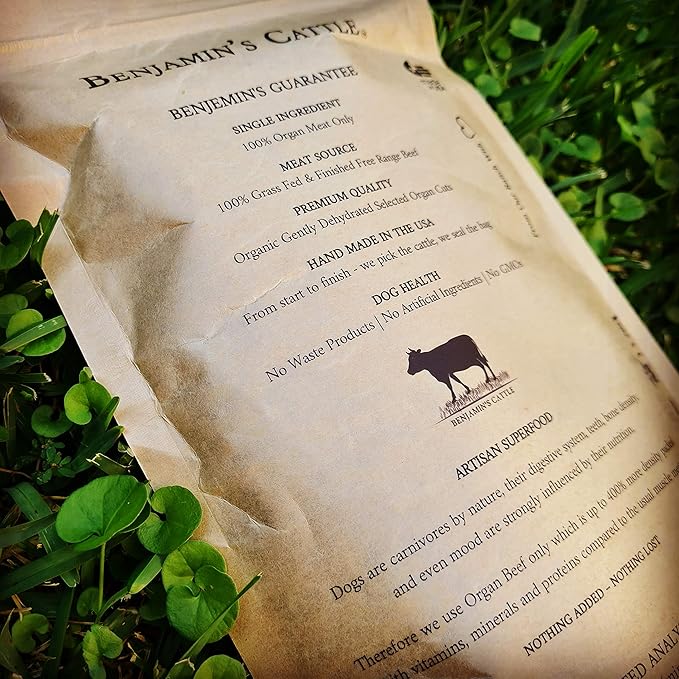 BENJAMIN'S CATTLE
BENJEMIN'S GUARANTEE
SINGLE INGREDIENT
100% Organ Meat Only
MEAT SOURCE
100% Grass Fed & Finished Free Range Beef
PREMIUM QUALITY
Organic Gently Dehydrated Selected Organ Cuts
HAND MADE IN THE USA
From start to finish - we pick the cattle, we seal the bag.
DOG HEALTH
No Waste Products | No Artificial Ingredients | No GMOs
BENJAMIN'S CATTLE
ARTISAN SUPERFOOD
Dogs are carnivores by nature, their digestive system, teeth, bone density,
and even mood are strongly influenced by their nutrition.
Therefore we use Organ Beef only which is up to 400% more density packed
with vitamins, minerals and proteins compared to the usual muscle
NOTHING ADDED - NOTHING LOST